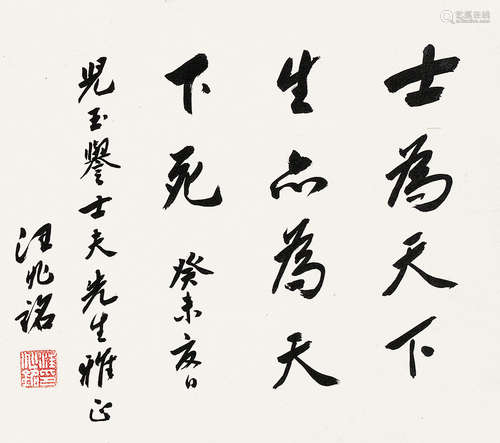 士為天下
生亦為天
下死 癸未夏日
児玉譽士夫先生雅正
汪兆銘